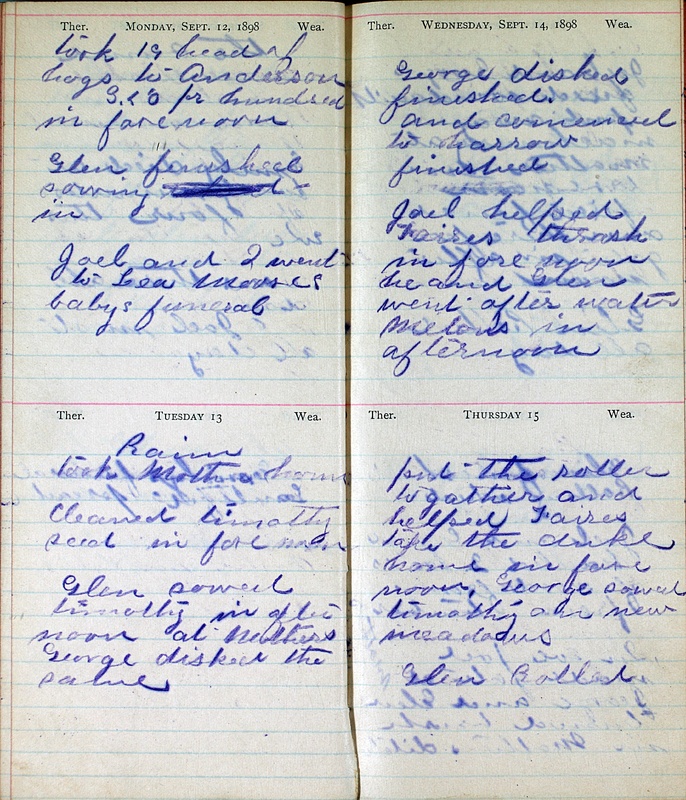 Ther. MONDAY, SEPT. 12, 1898 Wea.
took 19 head of
hogs to Anderson
3.20 pr hundred
in fore noon
Glen finished
sowing
in
Joel and I went
to Lea Mooses
babys funeral
Ther. TUESDAY 13 Wea.
Rain
took Mother home
Cleaned timothy
seed in fore noon
Glen sowed
timothy in after
noon at Mothers
George disked the
same
Ther. WEDNESDAY, SEPT. 14, 1898 Wea.
George disked
finished.
and comenced
to harrow
finished
Joel helped
Faires thrash
in fore noon
he and Glen
went after water
melons in
afternoon
Ther. THURSDAY 15 Wea.
put the roller
togather and
helped Faires
take the
home in fore
noon, George sowed
timothy on new
meadows
Glen Rolled